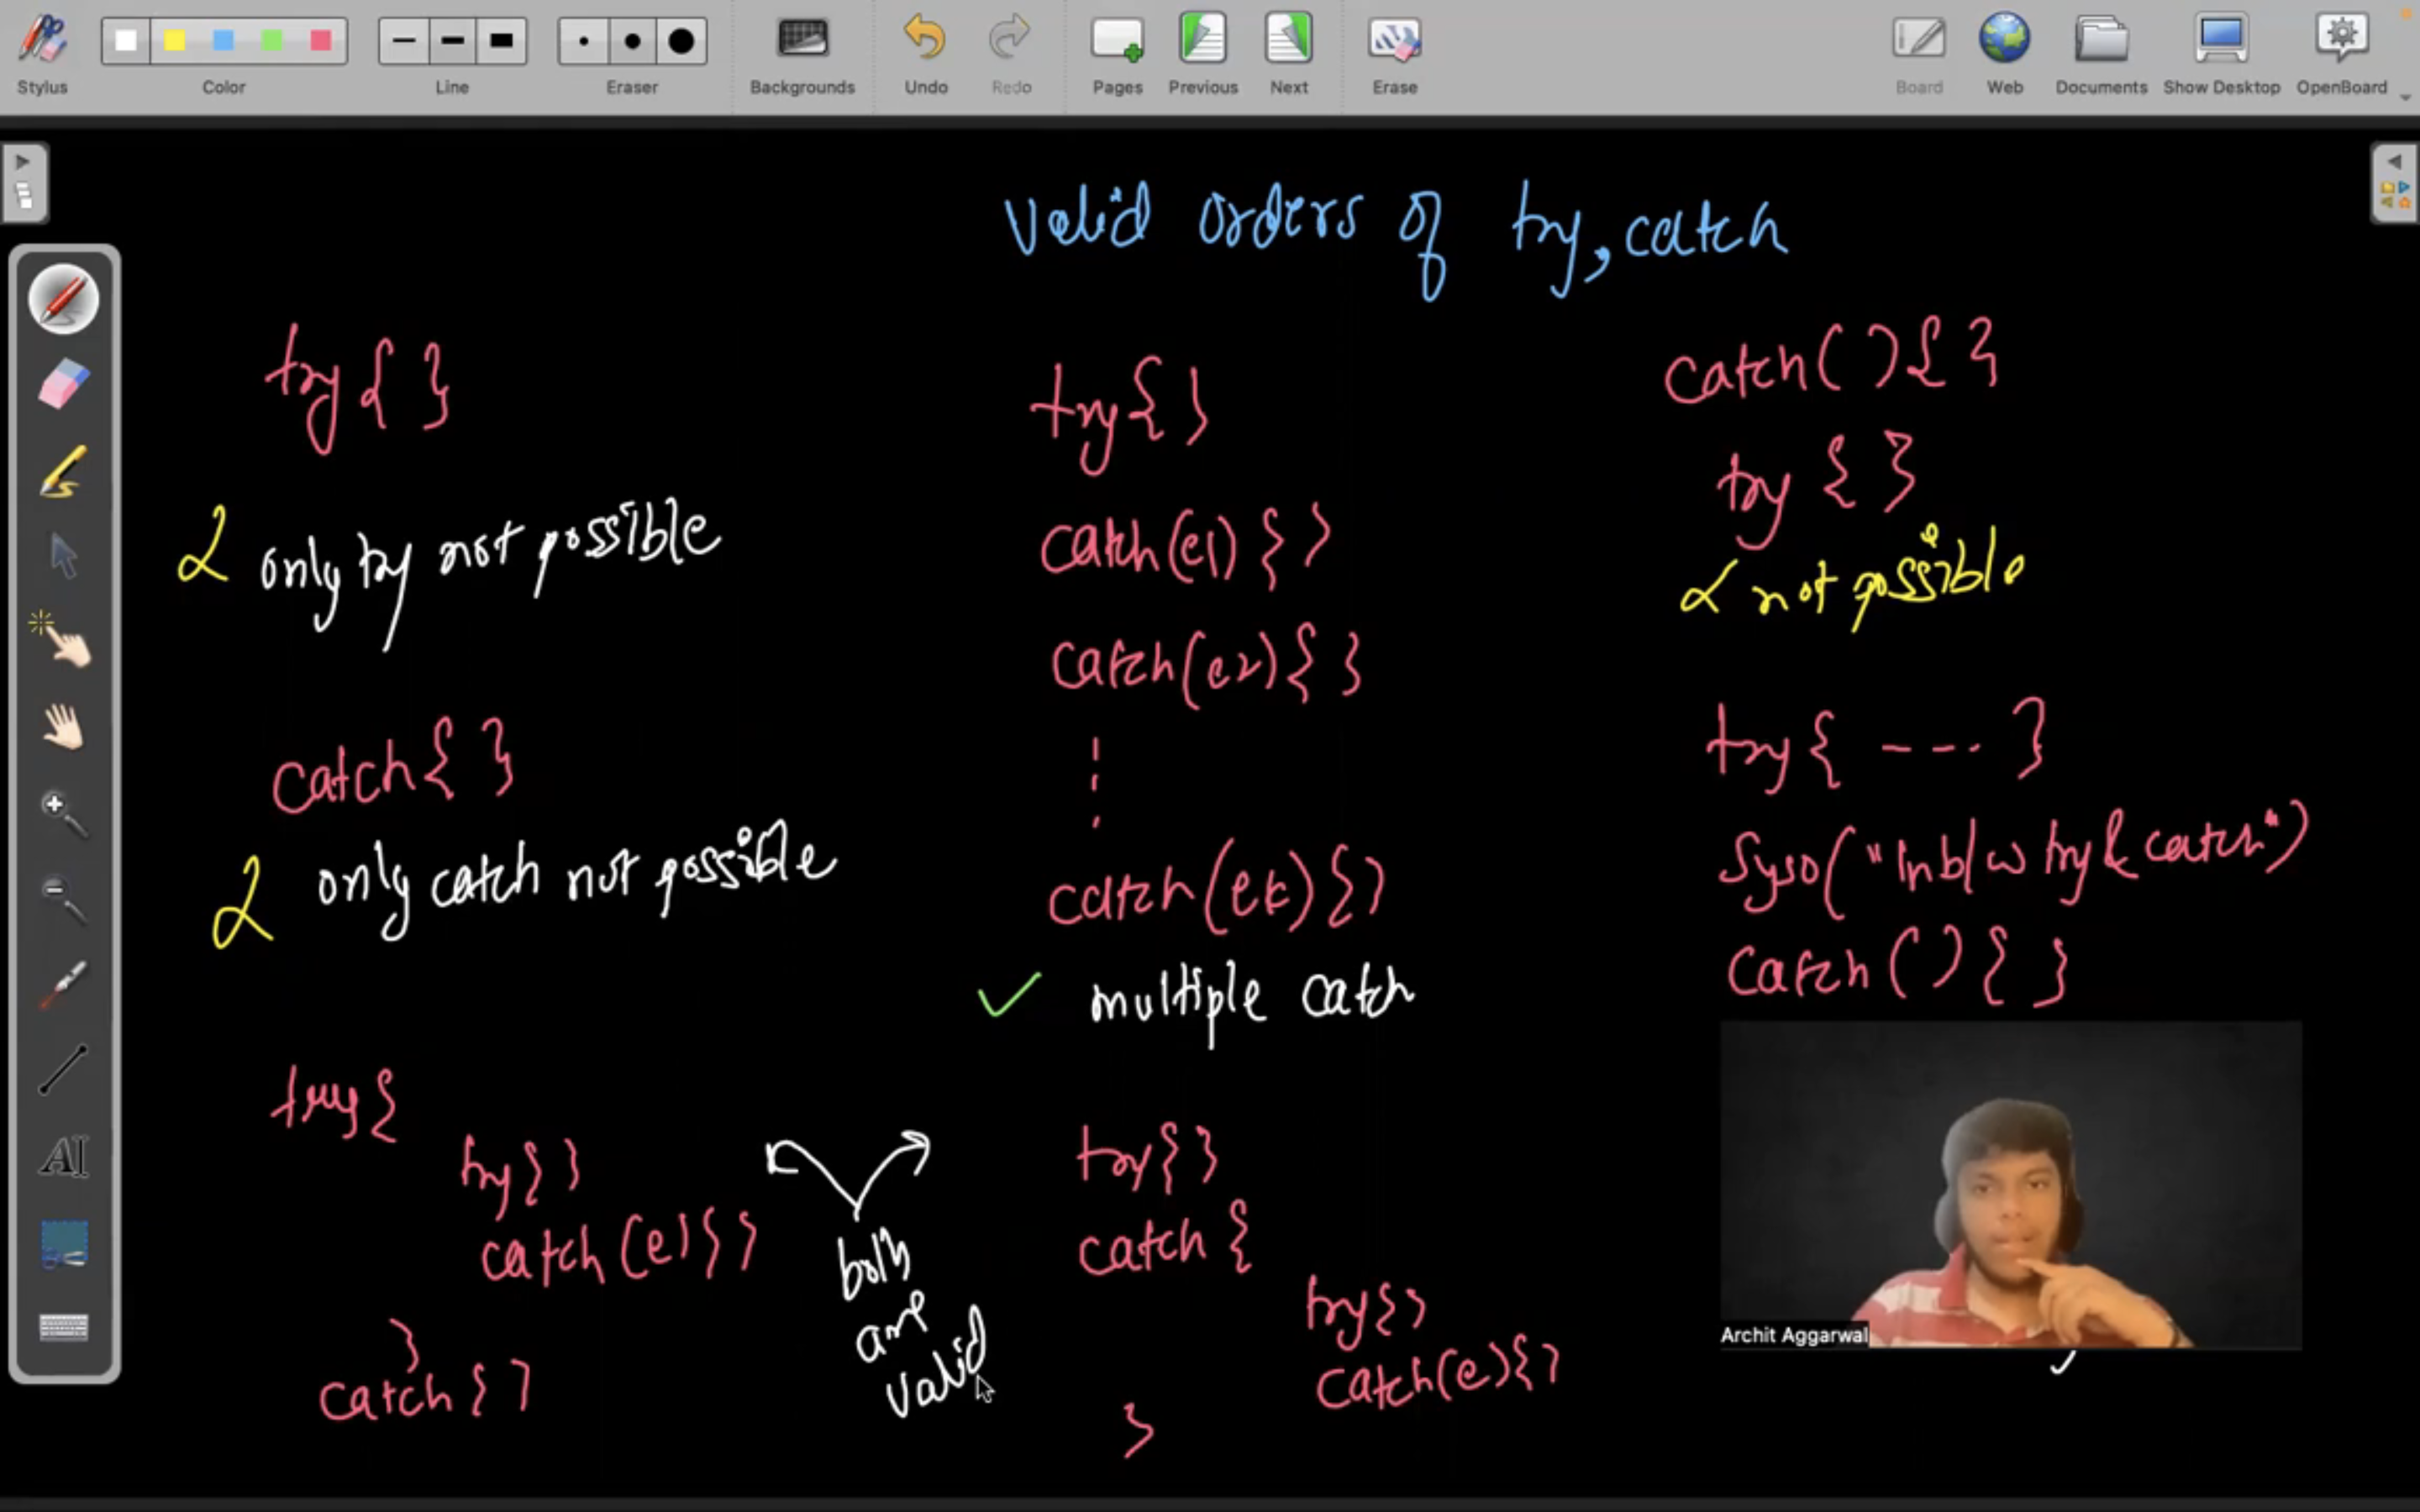 Stylus
Color
Line
Eraser
Backgrounds
Undo
Redo
Pages
Previous
Next
Erase
Board
Web
Documents
Show Desktop
OpenBoard
Valid orders of try, catch
try{ }
only try not possible
catch{ }
only catch not possible
try{
try{}
catch(e){}
}
catch{}
both
are
valid
try{}
catch(e1){}
catch(e2){}
catch(ek){}
✓ multiple catch
try{}
catch{
try{}
catch(e){}
}
catch(){}
try{}
not possible
try{ --- }
Syso("In b/w try & catch")
catch(){}
Archit Aggarwal
AI